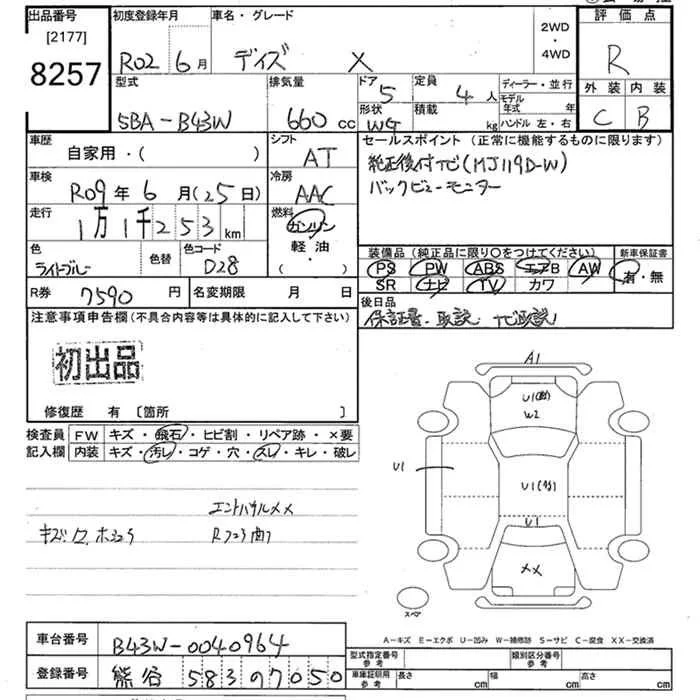 出品番号
[2177]
8257
初度登録年月
R02 6月
車名・グレード
デイズ X
2WD
・
4WD
評価点
R
外装 内装
C B
型式
5BA-B43W
排気量
660cc
ドア 5
形状 WG
定員 4人
積載 kg
ディーラー・並行
モデル年式 年
ハンドル 左・右
車歴
自家用・( )
シフト
AT
セールスポイント(正常に機能するものに限ります)
純正後付ナビ(MJ119D-W)
バックビューモニター
車検
R09年6月(25日)
冷房
AAC
走行
1万1千253km
燃料
ガソリン
軽油
・( )
色
ライトブルー
色替
色コード
D28
装備品(純正品に限り○をつけてください)
PS PW ABS エアB AW
SR ナビ TV カワ
新車保証書
有・無
R券 7590円
名変期限 月 日
後日品
保証書、取説、ナビ取説
注意事項申告欄(不具合内容等は具体的に記入して下さい)
初出品
修復歴 有 [箇所 ]
検査員 記入欄
FW キズ・飛石・ヒビ割・リペア跡・×要
内装 キズ・汚レ・コゲ・穴・スレ・キレ・破レ
A1
U1
W2
U1
U1
U1
XX
スペア
A-キズ E-エクボ U-凹み W-補修跡 S-サビ C-腐食 XX-交換済
車台番号 B43W-0040964
登録番号 熊谷 583 7050
型式指定番号 参考
類別区分番号 参考
車庫証明用 参考
長さ cm
幅 cm
高さ cm